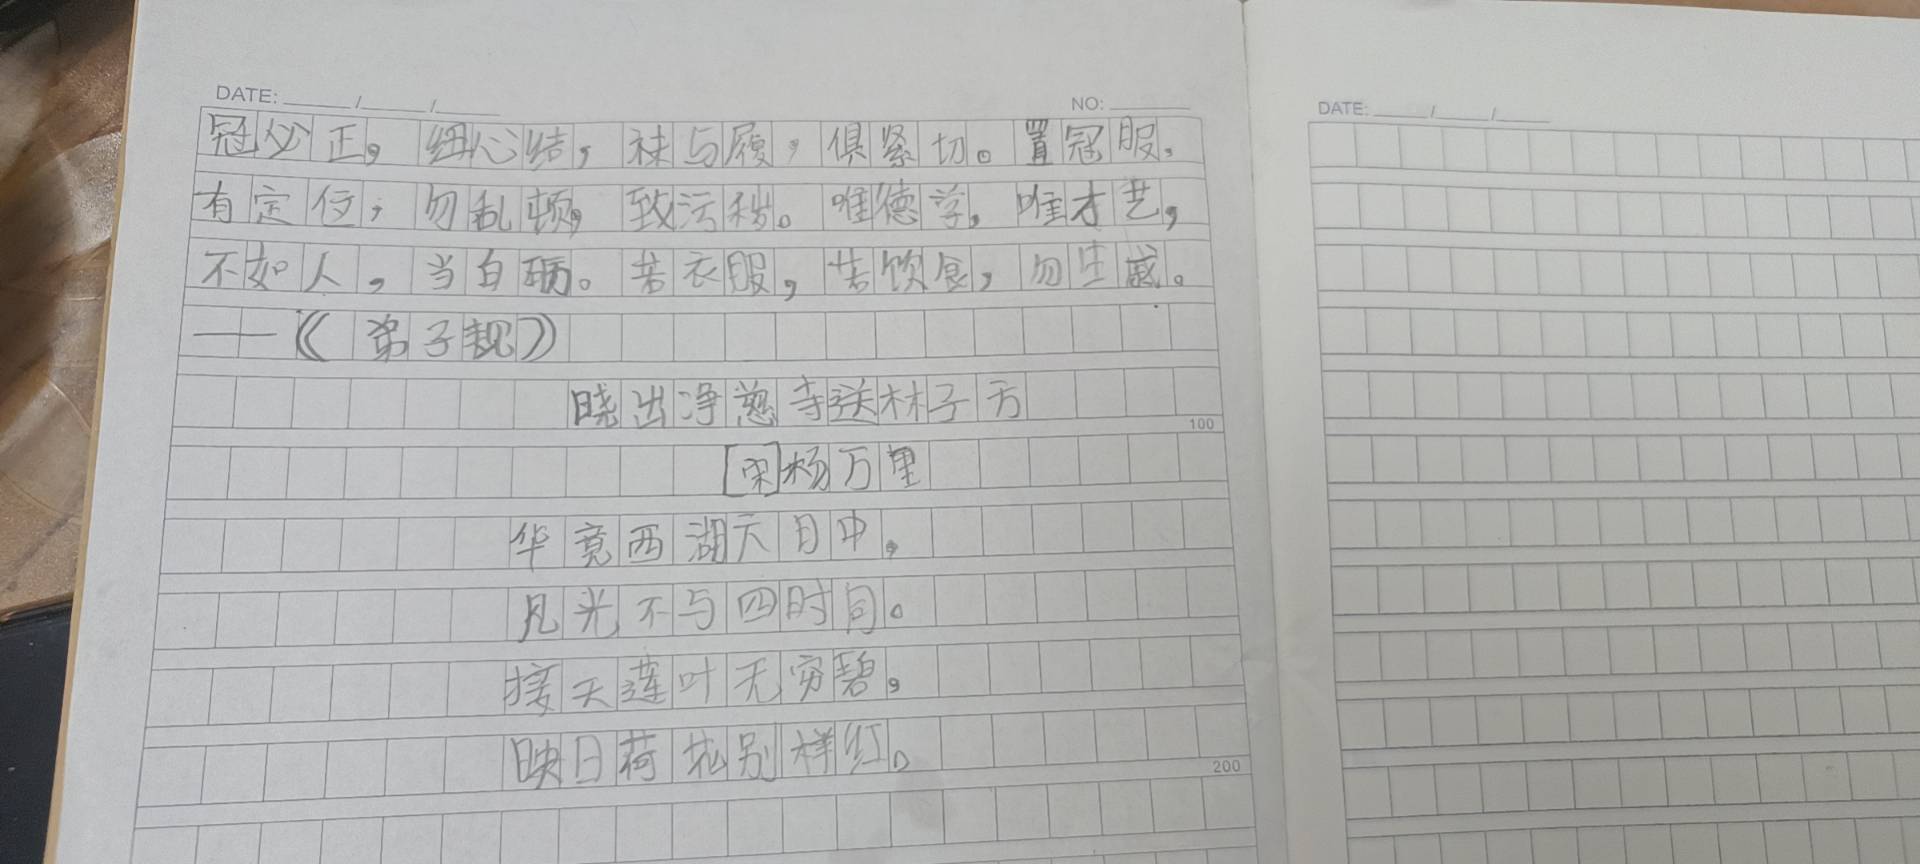 DATE: ____/____/____ NO: ______
冠必正，纽心结，袜与履，俱紧切。置冠服，
有定位，勿乱顿，致污秽。唯德学，唯才艺，
不如人，当自砺。若衣服，若饮食，勿生感。
——《弟子规》
晓出净慈寺送林子方
100
[宋]杨万里
毕竟西湖六月中，
风光不与四时同。
接天莲叶无穷碧，
映日荷花别样红。
200
DATE: ____/____/____